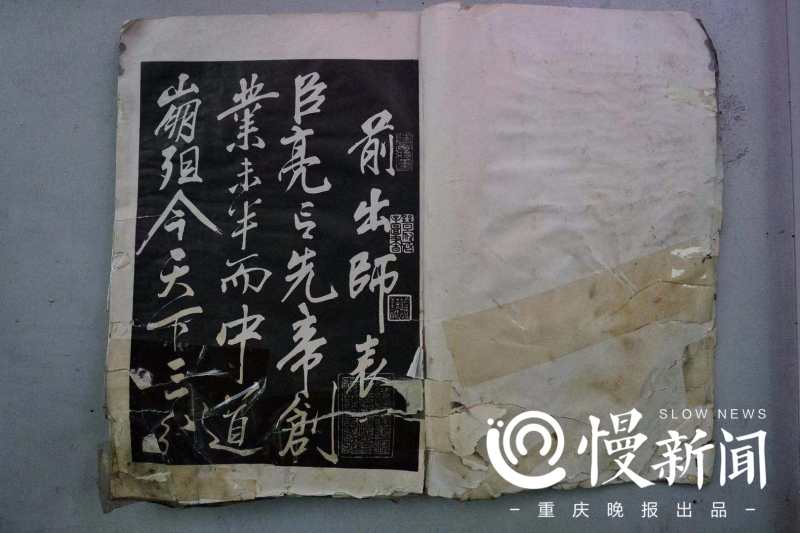 前出師表
臣亮言先帝創
業未半而中道
崩殂今天下三分
SLOW NEWS
慢新闻
- 重庆晚报出品 -